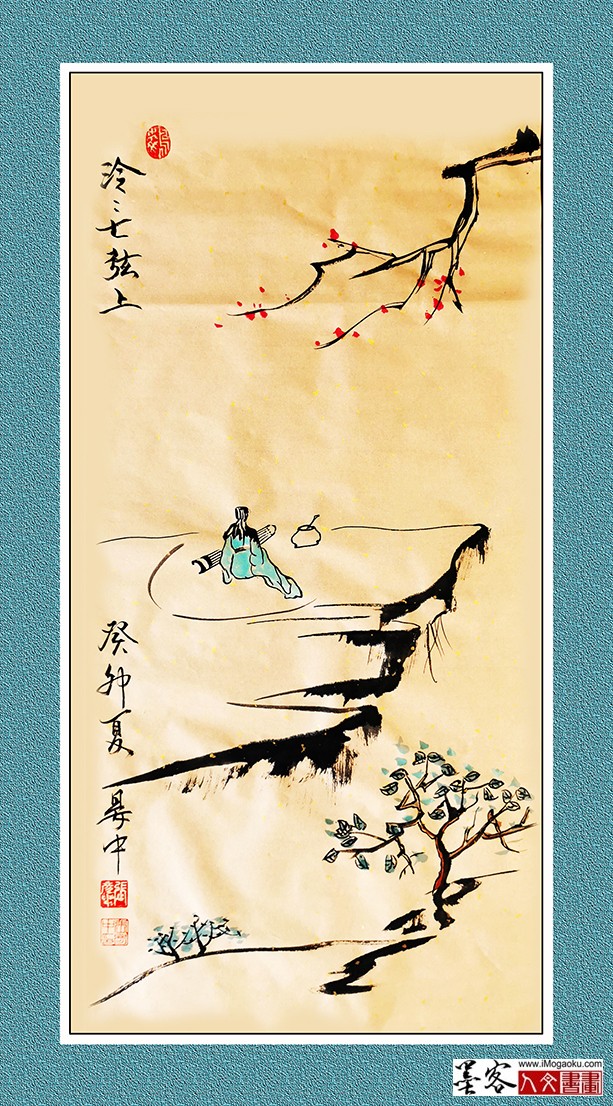 泠〻七弦上
癸卯夏 晏中
墨客
www.iMogaoku.com
人文書畫